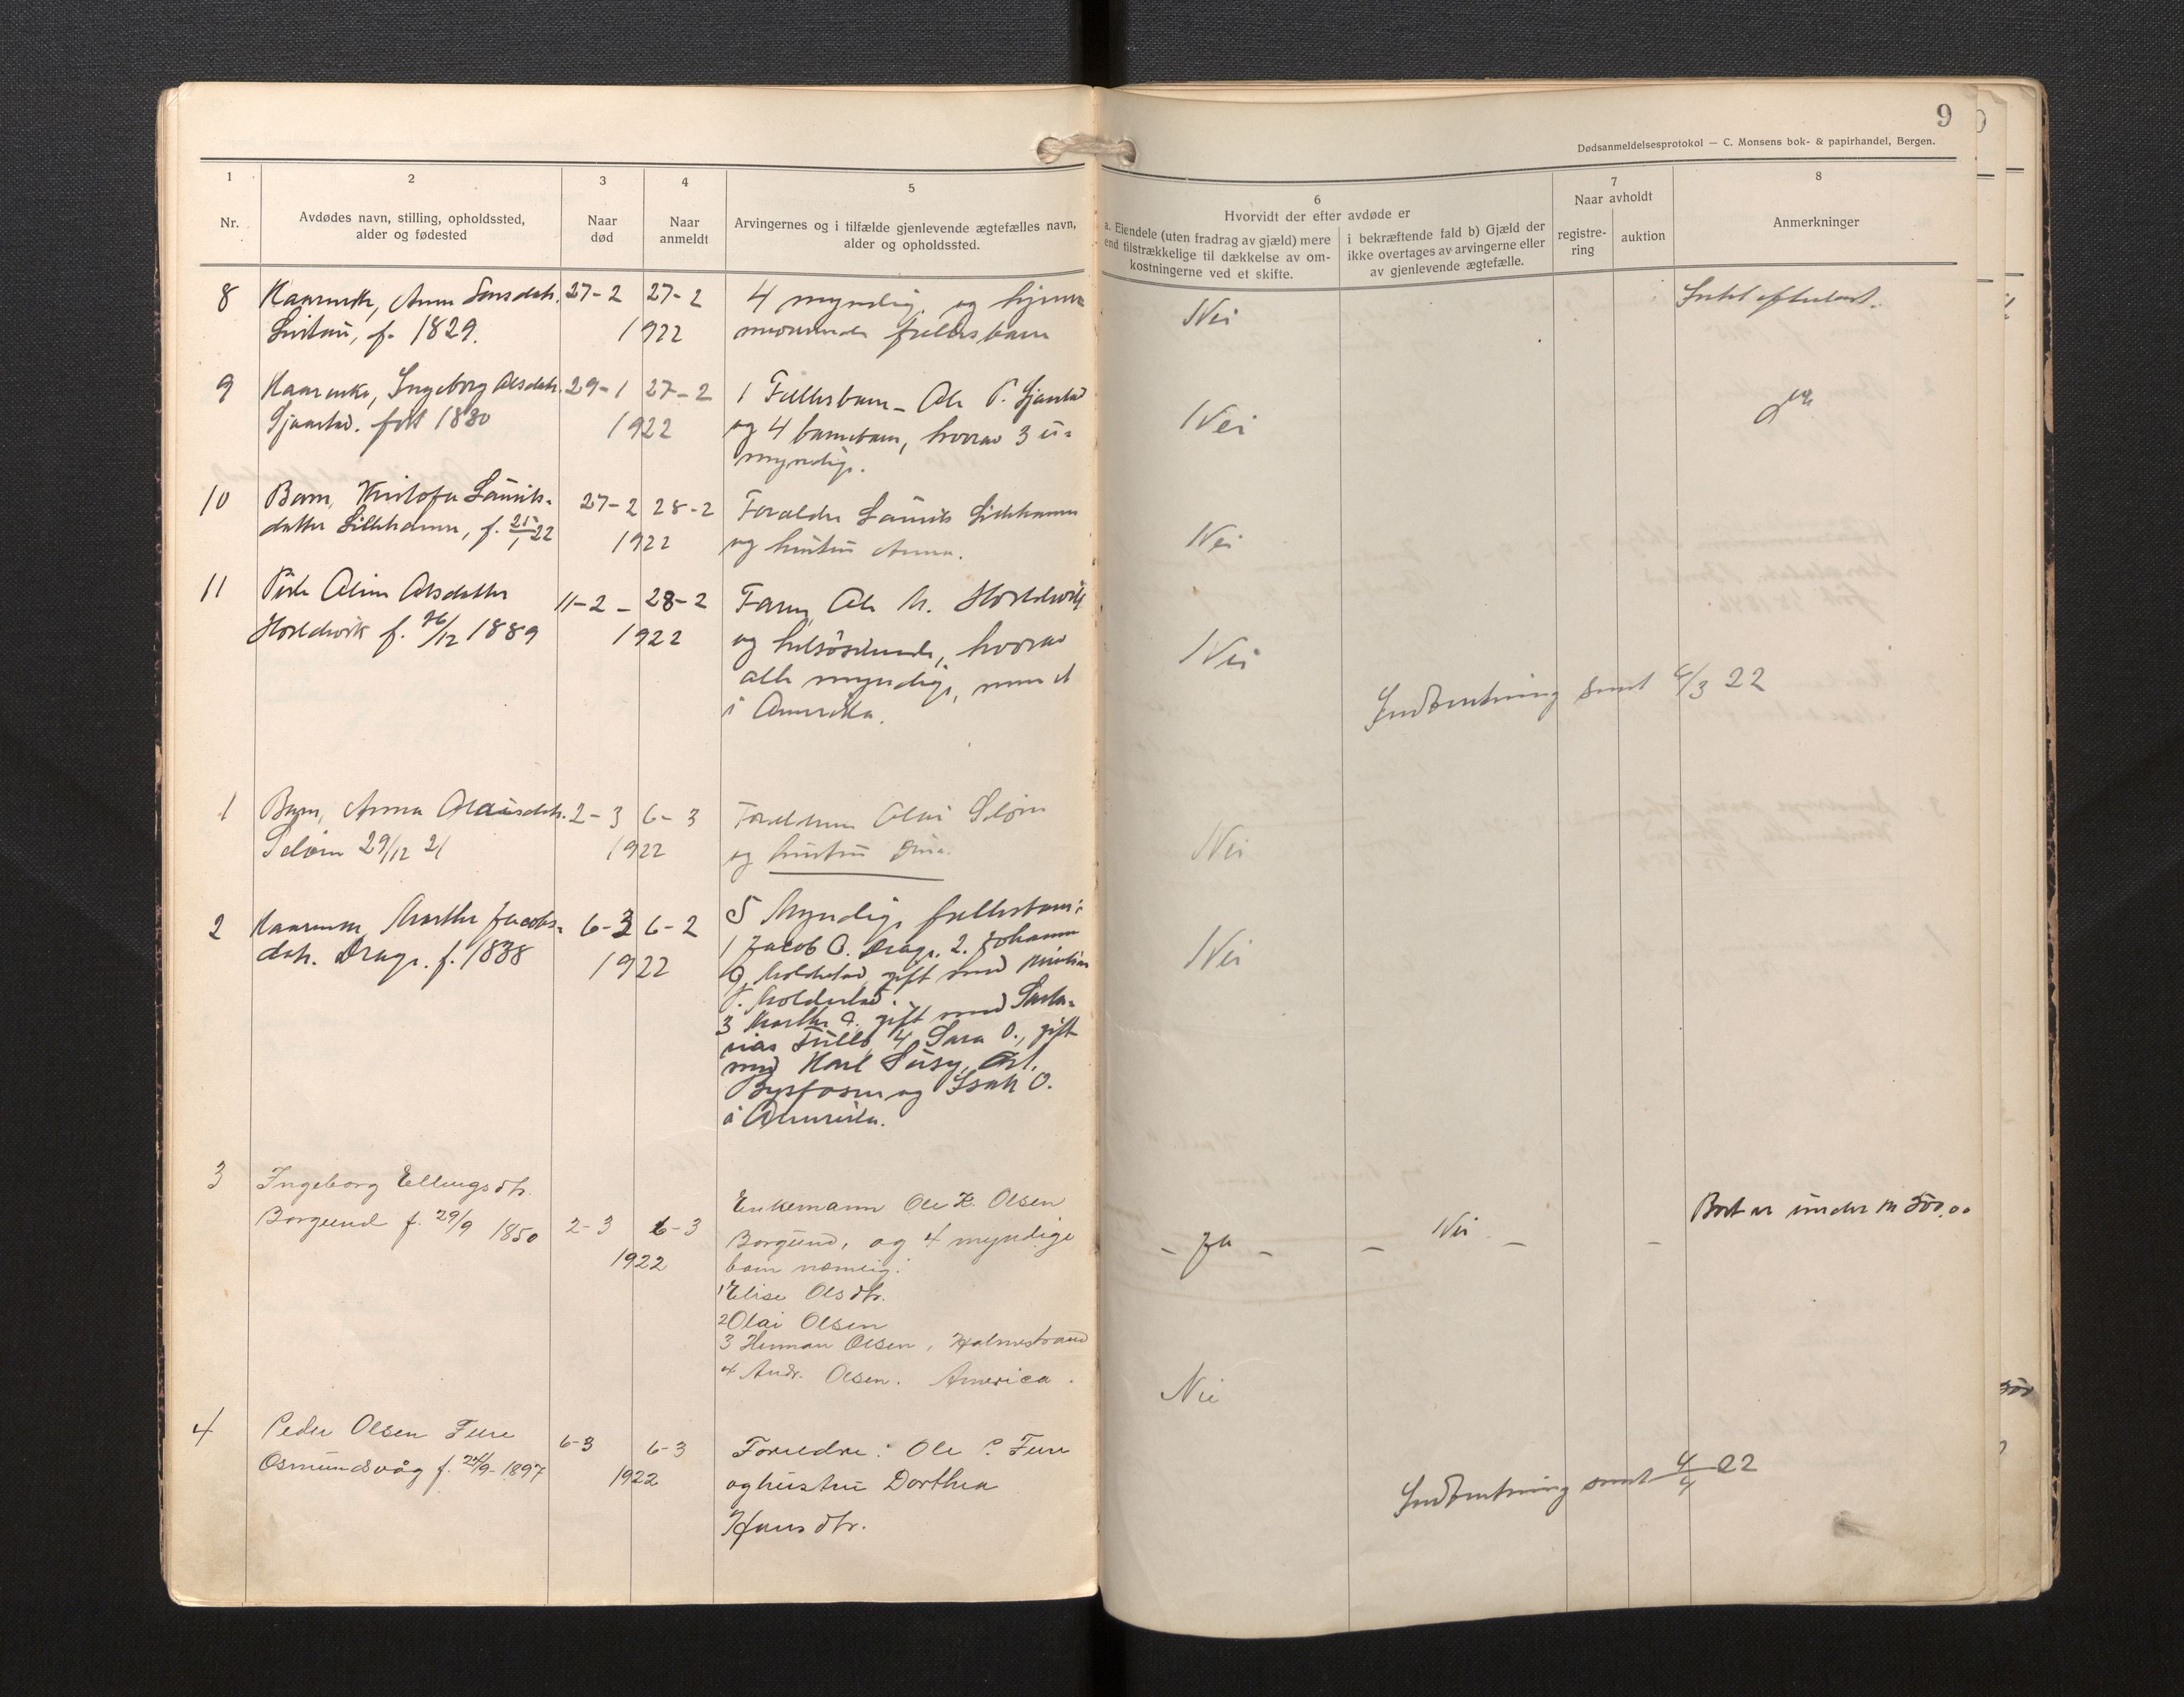 9
Dødsanmeldelsesprotokol — C. Monsens bok- & papirhandel, Bergen.
1
Nr.
2
Avdødes navn, stilling, opholdssted,
alder og fødested
3
Naar
død
4
Naar
anmeldt
5
Arvingernes og i tilfælde gjenlevende ægtefælles navn,
alder og opholdssted.
6
Hvorvidt der efter avdøde er
a. Eiendele (uten fradrag av gjæld) mere
end tilstrækkelige til dækkelse av om-
kostningerne ved et skifte.
i bekræftende fald b) Gjæld der
ikke overtages av arvingerne eller
av gjenlevende ægtefælle.
7
Naar avholdt
registre-
ring
auktion
8
Anmerkninger
8
Kaarenke, Anna
f. 1829.
27-2 27-2
1922
4 myndige og hjemme
fællesbarn
Nei
Intet efterladt.
9
Kaarenke, Ingeborg Olsdatr.
født 1830
29-1 27-2
1922
1 Fællesbarn - Ole P.
og 4 barnebarn, hvorav 3 u-
myndige.
Nei
10
Barn, Kristofa Laurits-
datter Lillehamn, f. 25/1 22
27-2 28-2
1922
Forældre Laurits Lillehamn
og hustru Anna.
Nei
11
Pike Oline Olsdatter
f. 26/12 1889
11-2 - 28-2
1922
Farm Ole M.
og helsøskende, hvorav
alle myndige, men et
i Amerika.
Nei
Indberetning sent 4/3 22
1
Barn, Anna Olaisdatr.
29/12 21
2-3 6-3
1922
Forældrene Olai
og hustru Dina.
Nei
2
Kaarenke, Marthe Jacobs-
datr. Drage. f. 1838
6-3 6-2
1922
5 Myndige fællesbarn:
1 Jacob O. Drage. 2. Johanne
O. Moldestad gift med Kristian
J. Moldestad.
3 Marthe O. gift med
4 Sara O., gift
med Karl
og Isak O.
i Amerika.
Nei
3
Ingeborg Ellingsdtr.
Borgund f. 29/9 1850
2-3 6-3
1922
Enkemann Ole H. Olsen
Borgund, og 4 myndige
barn nemlig:
1 Elise Olsdtr.
2 Olai Olsen
3 Herman Olsen, Holmestrand
4 Andr. Olsen. America.
- Ja -
- Nei -
-
Boet er under kr 500,00
4
Peder Olsen Fure
Osmundsvåg f. 24/9- 1897
6-3 6-3
1922
Forældre: Ole P. Fure
og hustru Dorthea
Hansdtr.
Nei
Indberetning sent 4/4 22